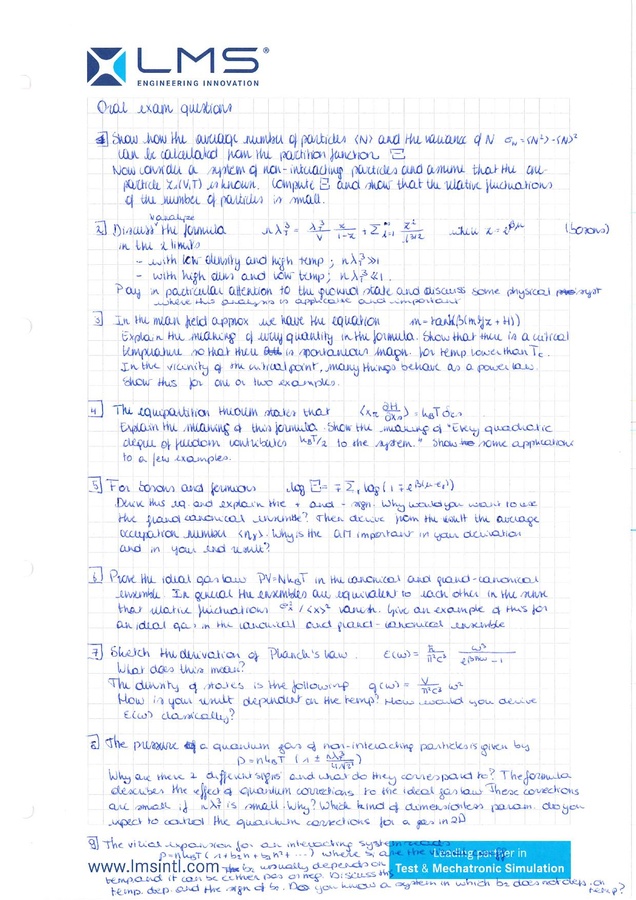 LMS®
ENGINEERING INNOVATION
Oral exam questions
1 Show how the average number of particles ⟨N⟩ and the variance of N σN = ⟨N²⟩ - ⟨N⟩²
can be calculated from the partition function Ξ
Now consider a system of non-interacting particles and assume that the one-
particle Z₁(V,T) is known. Compute Ξ and show that the relative fluctuations
of the number of particles is small.
2 Discuss the formula nλ_T³ = λ_T³/V z/(1-z) + Σ zˡ/l^{3/2} when z = e^{βμ} (bosons)
in the 2 limits
- with low density and high temp; nλ_T³ ≫ 1
- with high dens and low temp; nλ_T³ ≪ 1
Pay in particular attention to the ground state and discuss some physical syst
where this analysis is applicable and important
3 In the mean field approx we have the equation m = tanh(β(mJz + H))
Explain the meaning of every quantity in the formula. Show that there is a critical
temperature so that there is spontaneous magn. for temp lower than Tc.
In the vicinity of the critical point, many things behave as a power law.
Show this for one or two examples.
4 The equipartition theorem states that ⟨x_r ∂H/∂x_s⟩ = k_BT δ_rs
Explain the meaning of this formula. Show the meaning of "Every quadratic
degree of freedom contributes k_BT/2 to the system." Show some applications
to a few examples.
5 For bosons and fermions log Ξ = ∓ Σ_r log(1 ∓ e^{β(μ-ε_r)})
Derive this eq. and explain the + and - sign. Why would you want to use
the grand canonical ensemble? Then derive from the result the average
occupation number ⟨n_r⟩. Why is the important in your derivation
and in your end result?
6 Prove the ideal gas law PV = Nk_BT in the canonical and grand-canonical
ensemble. In general the ensembles are equivalent to each other in the sense
that relative fluctuations σ_x²/⟨x⟩² vanish. Give an example of this for
an ideal gas in the canonical and grand-canonical ensemble
7 Sketch the derivation of Planck's law. ε(ω) = ħ/π²c³ ω³/(e^{βħω} - 1)
What does this mean?
The density of states is the following g(ω) = V/π²c³ ω²
How is your result dependent on the temp? How would you derive
ε(ω) classically?
8 The pressure of a quantum gas of non-interacting particles is given by
p = nk_BT (1 ± nλ_T³/4√2)
Why are there 2 different signs and what do they correspond to? The formula
describes the effect of quantum corrections to the ideal gas law. These corrections
are small if nλ_T³ is small. Why? Which kind of dimensionless param. do you
expect to control the quantum corrections for a gas in 2D
9 The virial expansion for an interacting system reads
p = nk_BT (1 + b₂n + b₃n² + ...) where
usually depends on
temp and it can be either pos or neg. Discuss this
temp. dep. and the sign of b₂. Do you know a system in which b₂ does not dep. on
temp?
www.lmsintl.com
Leading partner in
Test & Mechatronic Simulation